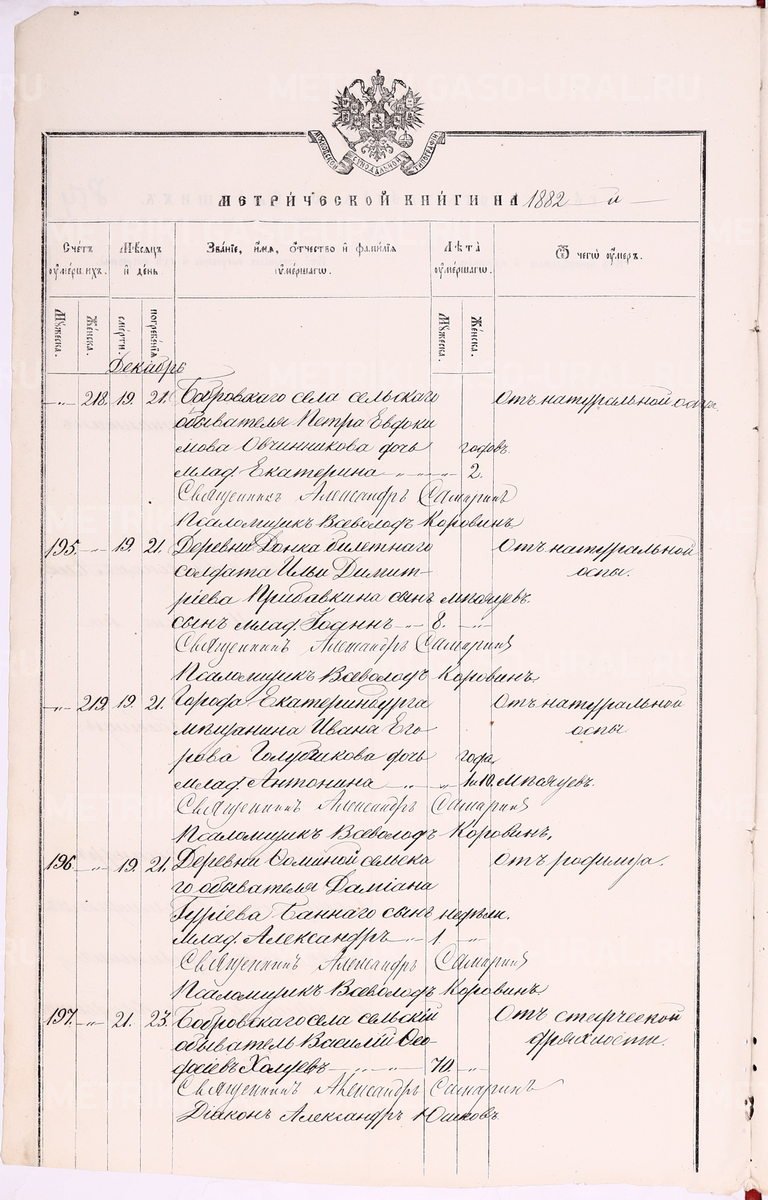 МОСКОВСКОЙ СѴНОДАЛЬНОЙ ТИПОГРАФІИ
МЕТРИ́ЧЕСКОЙ КНИ́ГИ НА 1882 й
Счетъ оумершихъ.
Мѣсяцъ и день
Званіе, имя, отчество и фамилія оумершаго.
Лѣта оумершаго.
Ѿ чегѡ оумеръ.
Мужеска.
Женска.
смерти.
погребенія
Мужеска.
Женска.
Декабрь
" 218. 19. 21. Бобровскаго села сельскаго Отъ натуральной оспы
обывателя Петра Евдоки
мова Овчинникова дочь годовъ
млад. Екатерина " " " 2.
Священникъ Александръ Самаринъ
Псаломщикъ Всеволодъ Коровинъ
195. " 19. 21. Деревни билетнаго Отъ натуральной
солдата Ильи Димит- оспы.
ріева Прибавкина сынъ мѣсяцевъ.
сынъ млад. " 8. "
Священникъ Александръ Самаринъ
Псаломщикъ Всеволодъ Коровинъ.
" 219. 19. 21. Города Екатеринбурга Отъ натуральной
мѣщанина Ивана Его оспы
рова Голубчикова дочь года
млад. Антонина " " 1 и 10. мѣсяцевъ.
Священникъ Александръ Самаринъ
Псаломщикъ Всеволодъ Коровинъ.
196. " 19. 21. Деревни Ѳоминой сельска Отъ родимца.
го обывателя Даміана
Гуріева Баннаго сынъ недѣли.
млад. Александръ " 1 "
Священникъ Александръ Самаринъ
Псаломщикъ Всеволодъ Коровинъ
197. " 21. 23. Бобровскаго села сельскій Отъ старческой
обыватель Василій Ѳео дряхлости.
Холуевъ " " " 70. "
Священникъ Александръ Самаринъ
Діаконъ Александръ Юшковъ